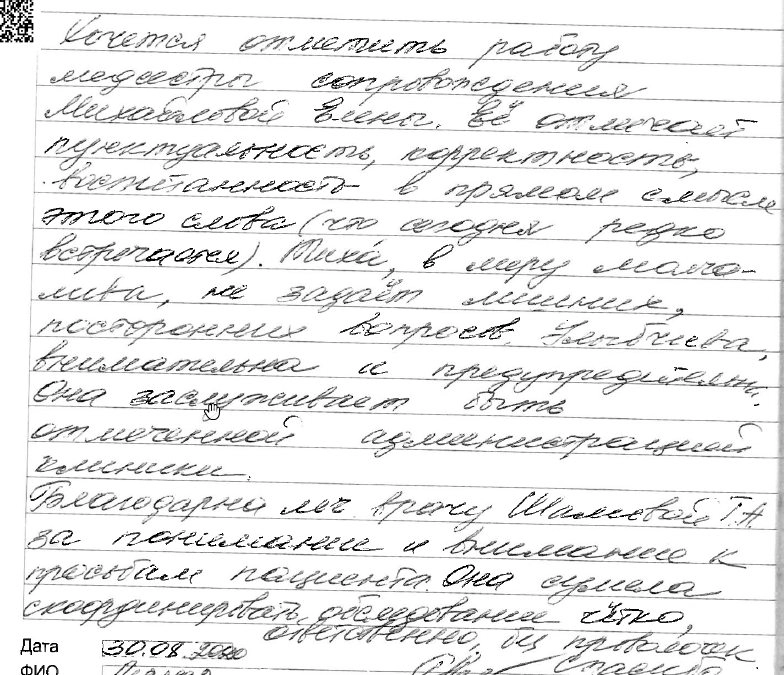 Хочется отметить работу
медсестры сопровождения
Михайловой Елены. Её отмечает
пунктуальность, корректность,
воспитанность в прямом смысле
этого слова (что сегодня редко
встречается). Тиха, в меру молча-
лива, не задаёт лишних,
посторонних вопросов. Улыбчива,
внимательна и предупредительна.
Она заслуживает быть
отмеченной администрацией
клиники.
Благодарна леч. врачу Т.А
за понимание и внимание к
просьбам пациента. Она сумела
скоординировать обследование чётко,
ответственно, проволочек.
Дата 30.08.2020 Спасибо
ФИО